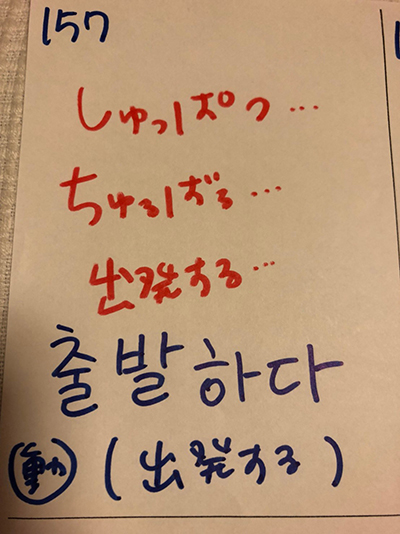 157
しゅっぱつ…
ちゅるばる…
出発する…
출발하다
動 (出発する)